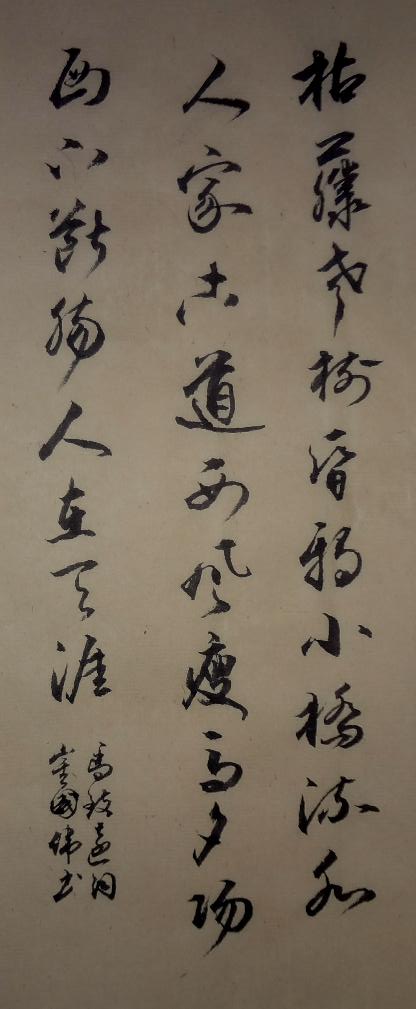 枯藤老樹昏鴉小橋流水
人家古道西風瘦馬夕陽
西下斷腸人在天涯
馬致遠詞
崔國偉书